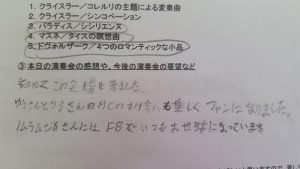 1. クライスラー／コレルリの主題による変奏曲
2. クライスラー／シンコペーション
3. パラディス／シシリエンヌ
4. マスネ／タイスの瞑想曲
5. ドヴォルザーク／4つのロマンティックな小品
③ 本日の演奏会の感想や、今後の演奏会の要望など
初めて この会場に来ました。
さんと さんのMCのかけ合いも楽しく ファンになりました。
さんには、FBでいつもお世話になっています